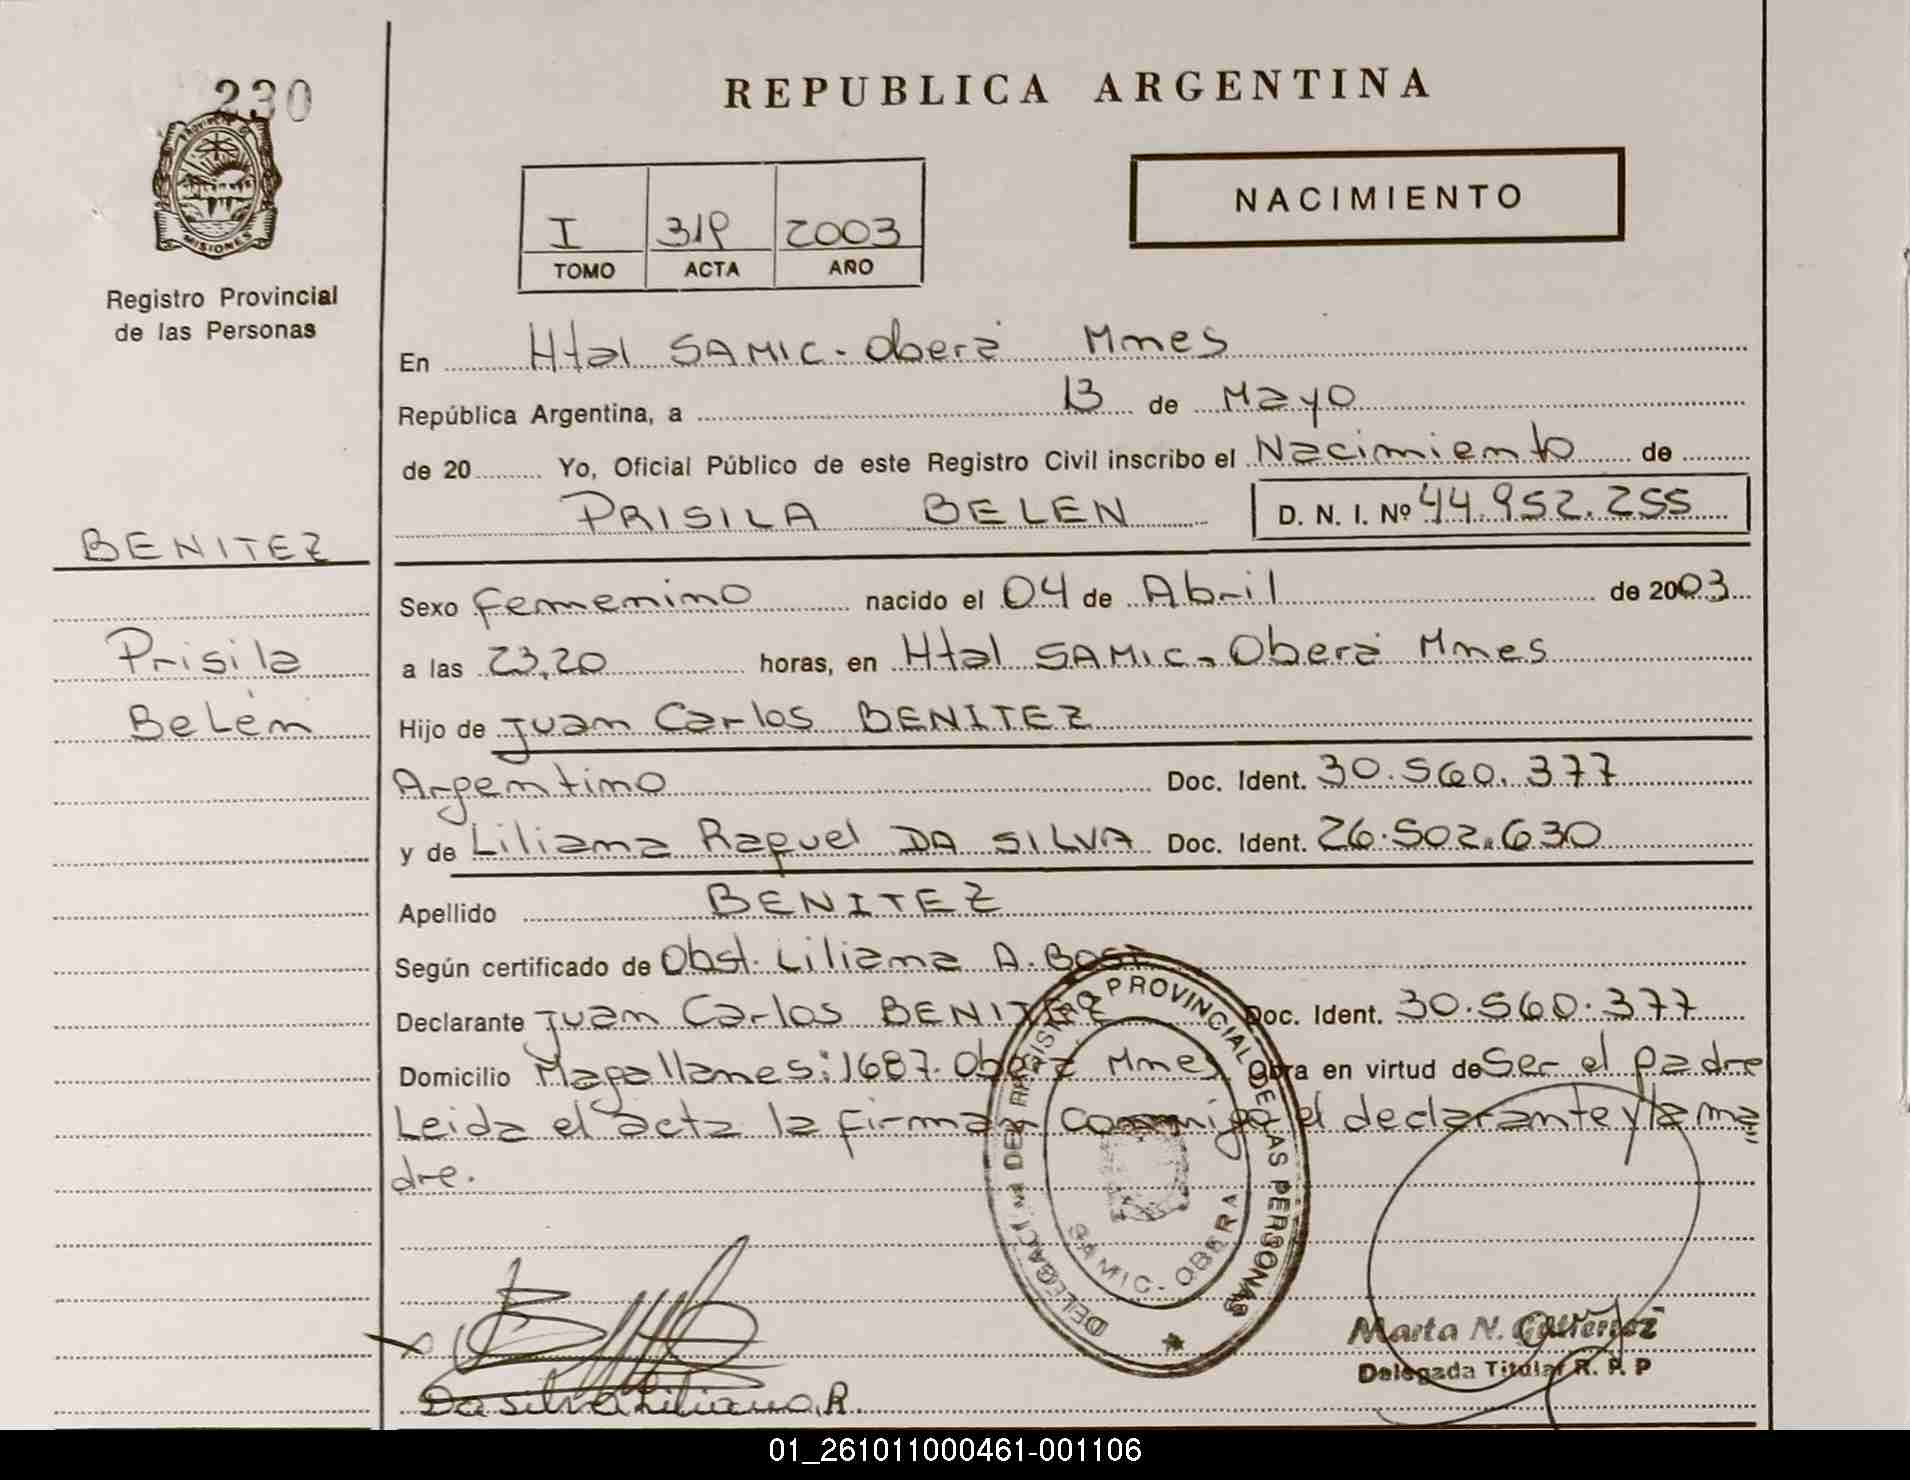 230
PROVINCIA DE
MISIONES
Registro Provincial
de las Personas
REPUBLICA ARGENTINA
NACIMIENTO
I 319 2003
TOMO ACTA AÑO
En Htal SAMIC - Oberá Mnes
República Argentina, a 13 de Mayo
de 20 Yo, Oficial Público de este Registro Civil inscribo el Nacimiento de
PRISILA BELEN D. N. I. Nº 44.952.255
BENITEZ
Prisila
Belén
Sexo femenino nacido el 04 de Abril de 2003
a las 23,20 horas, en Htal SAMIC - Oberá Mnes
Hijo de Juan Carlos BENITEZ
Argentino Doc. Ident. 30.560.377
y de Liliana Raquel DA SILVA Doc. Ident. 26.502.630
Apellido BENITEZ
Según certificado de Obst. Liliana A. Bost
Declarante Juan Carlos BENITEZ Doc. Ident. 30.560.377
Domicilio Magallanes: 1687. Oberá Mnes Obra en virtud de Ser el padre
Leida el acta la firman conmigo el declarante y la ma
dre.
DELEGACI DEL REGISTRO PROVINCIAL DE LAS PERSONAS
SAMIC - OBERA
Da silva Liliana R.
Marta N. Gutierrez
Delegada Titular R. P. P
01_261011000461-001106